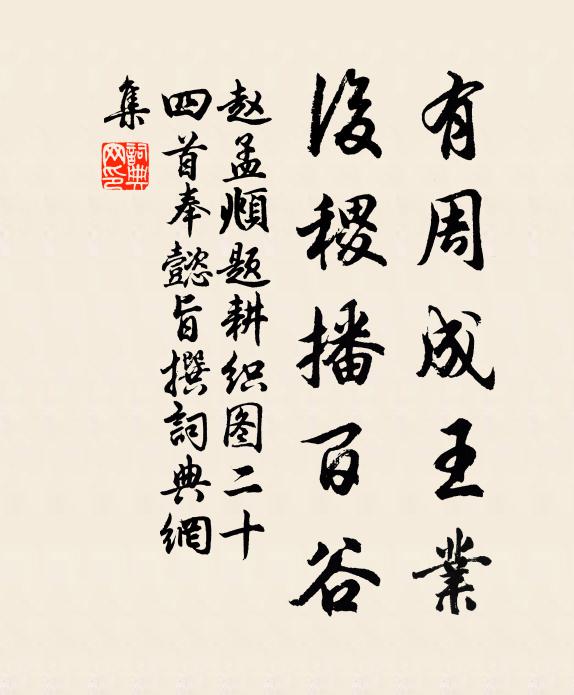 有周成王業
後稷播百谷
赵孟頫题耕织图二十
四首奉懿旨撰詞典網
集
詞典
网印